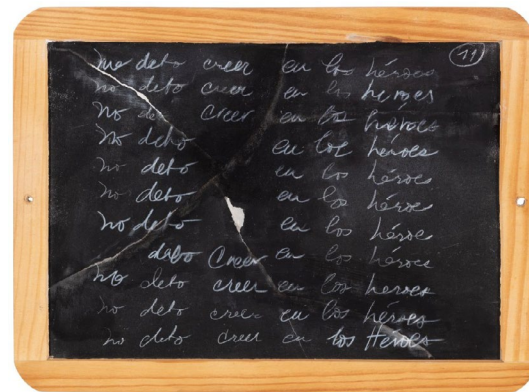 no debo creer en los héroes 11
no debo creer en los heroes
no de creer en los héroes
no debo en los héroes
no debo en los héroes
no debo en los héroe
no debo en los héroe
debo Creer en los héroes
no debo creer en los héroes
no debo creer en los héroes
no debo creer en los Héroes